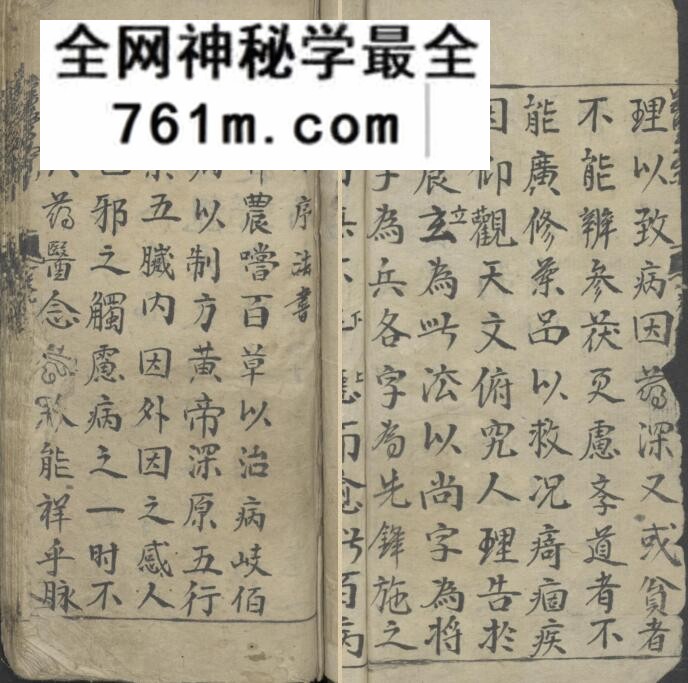 全网神秘学最全
761m.com
序法書
農嚐百草以治病岐伯
以制方黃帝深原五行
五臟內因外因之感人
邪之觸慮病之一時不
药醫念能祥乎脉
理以致病因药深又或貧者
不能辨参茯更慮孛道者不
能廣修藥品以救况痼疾
仰觀天文俯究人理告於
農玄立為此法以尚字為將
字為兵各字為先鋒施之
下而愈此百病